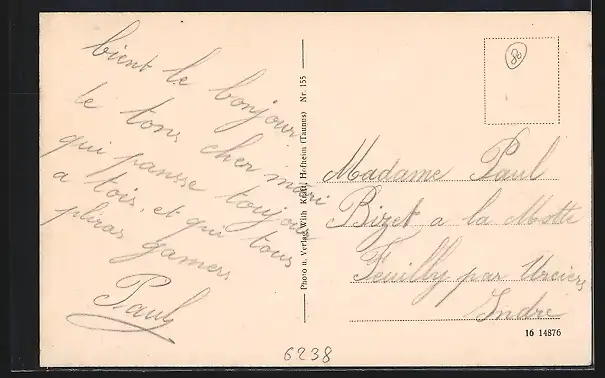 bient le bonjour
de tons cher mari
qui pansse toujour
a tois. et qui tous
pliras gamers
Paul
Photo u. Verlag Wilh. Kratt, Hofheim (Taunus) Nr. 155
80
Madame Paul
Bizet a la Motte
Feuilly par Urciers
Indre
16 14876
6238